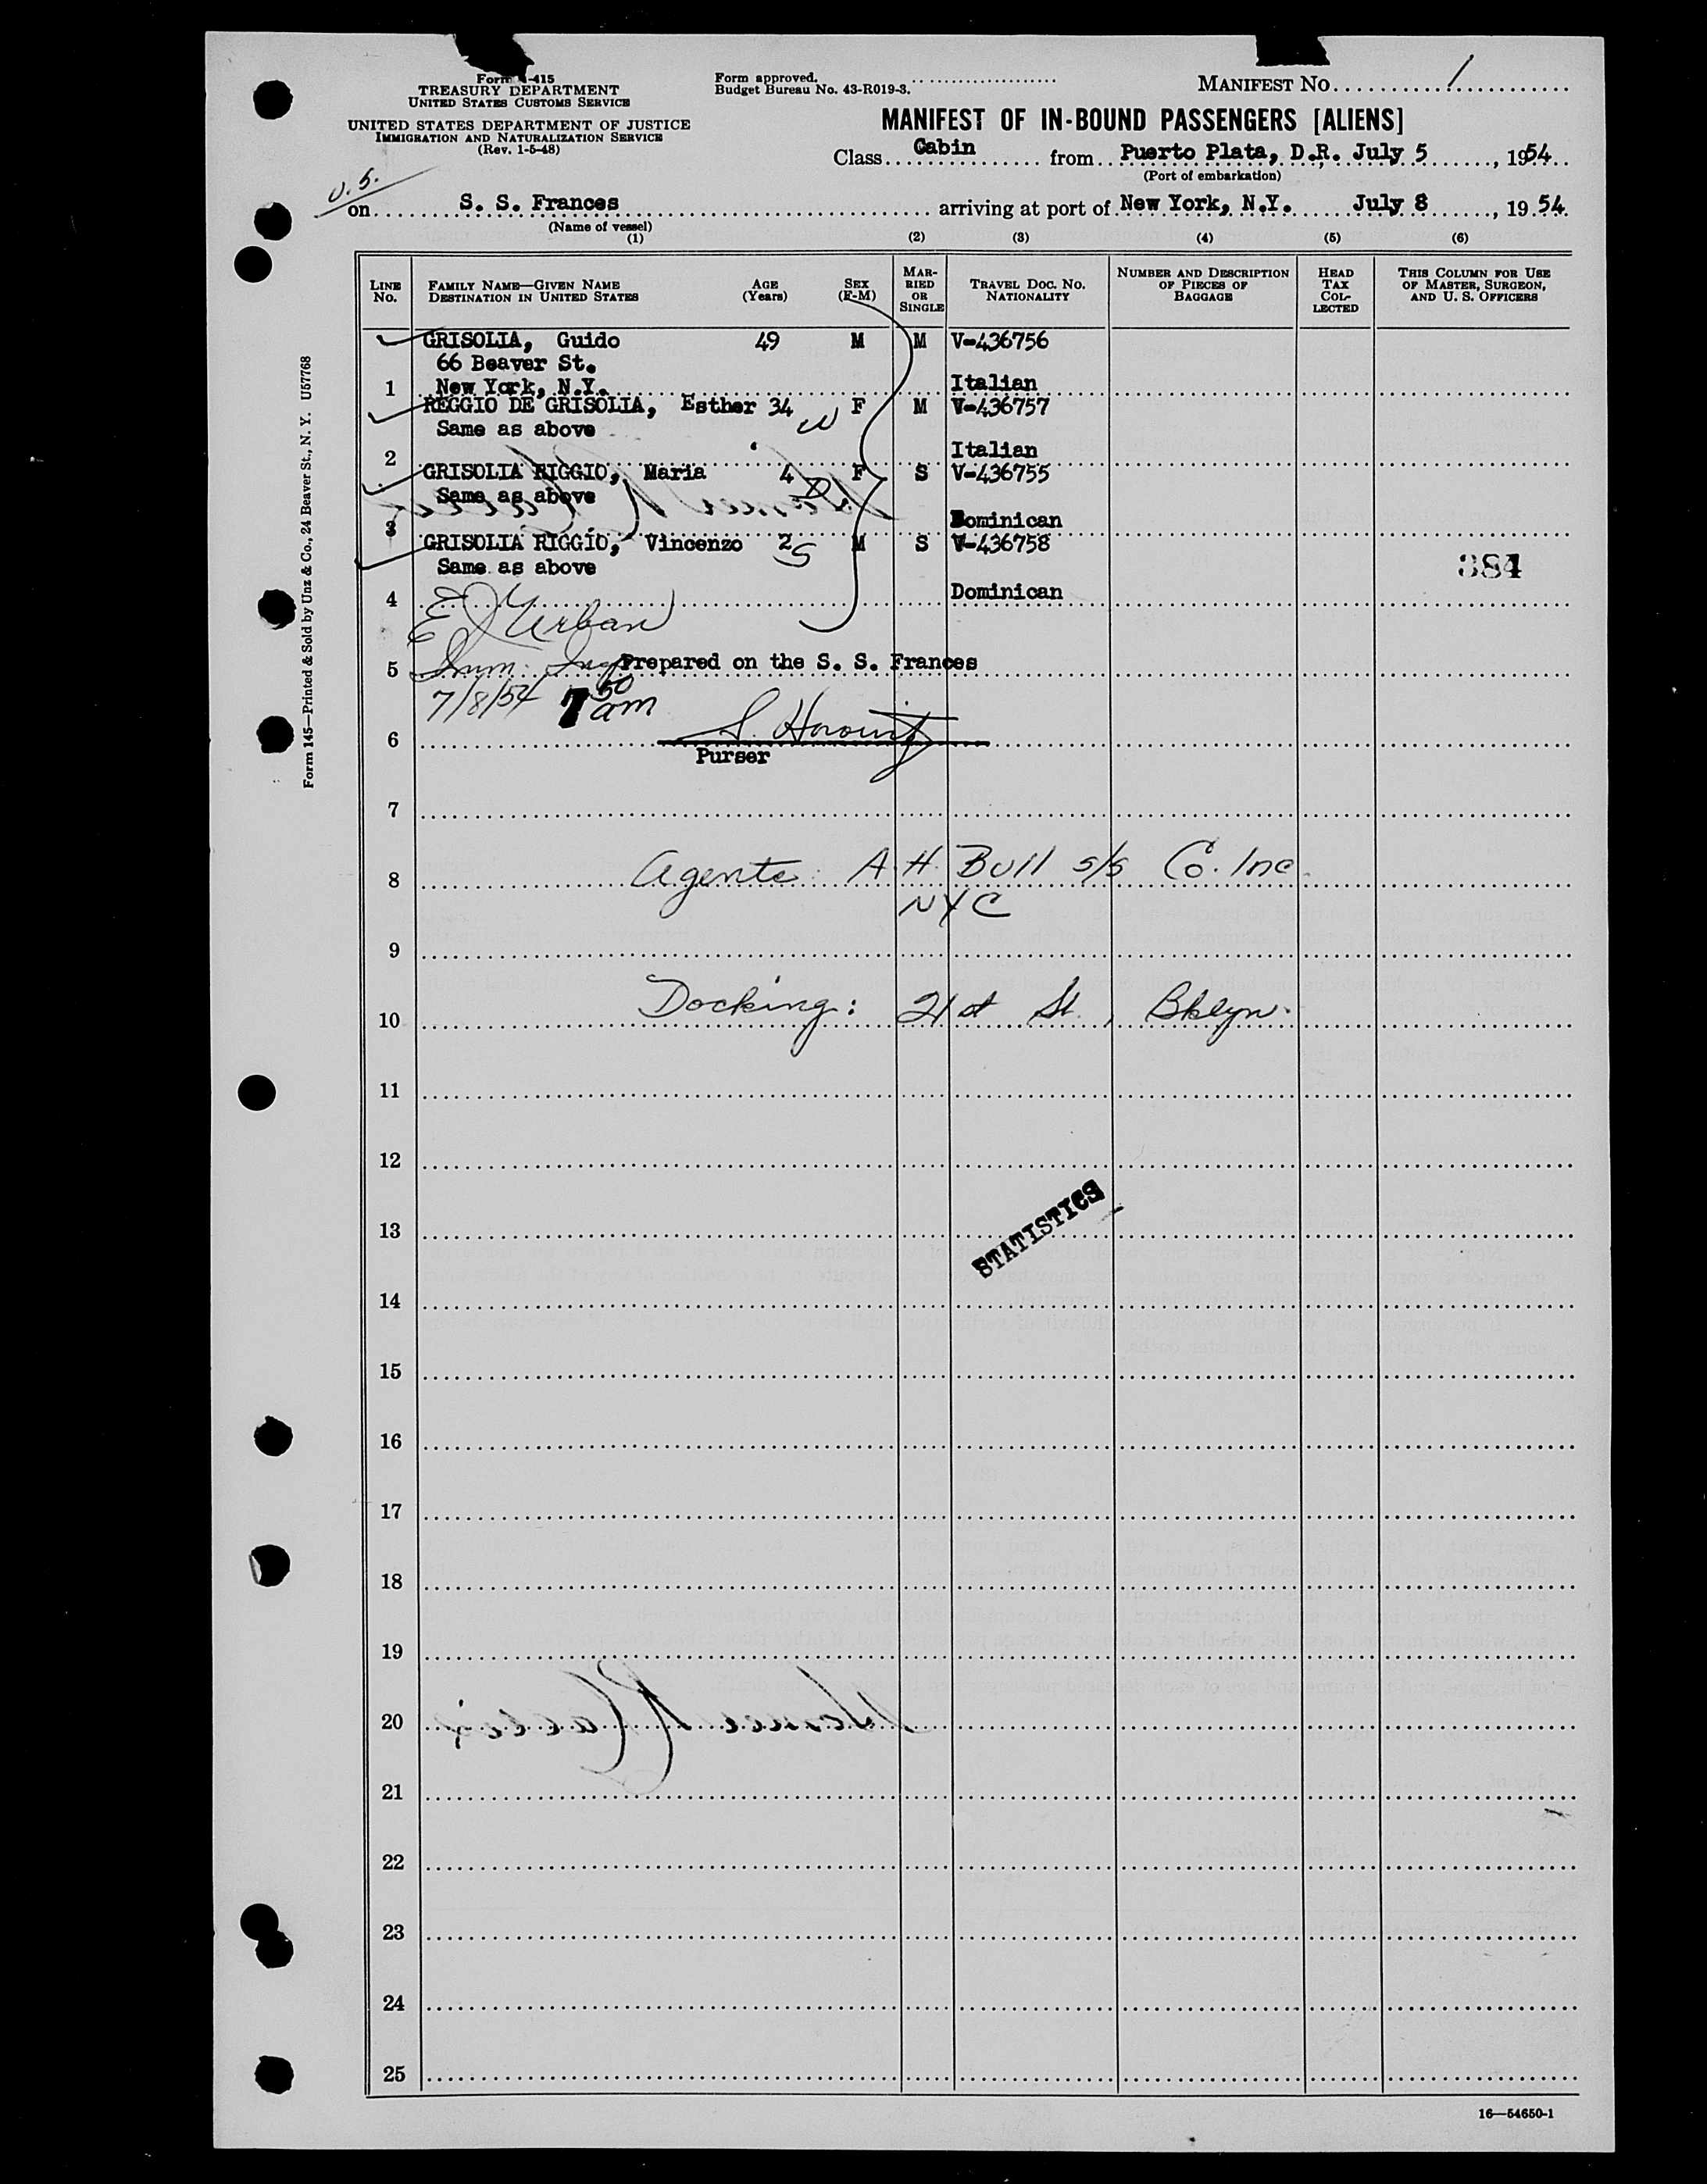 Form I-415
TREASURY DEPARTMENT
UNITED STATES CUSTOMS SERVICE
UNITED STATES DEPARTMENT OF JUSTICE
IMMIGRATION AND NATURALIZATION SERVICE
(Rev. 1-5-48)
Form approved.
Budget Bureau No. 43-R019-3.
MANIFEST NO. 1
MANIFEST OF IN-BOUND PASSENGERS [ALIENS]
Class Cabin from Puerto Plata, D.R. July 5, 1954
(Port of embarkation)
on S. S. Frances arriving at port of New York, N.Y. July 8, 1954
(Name of vessel)
(1) (2) (3) (4) (5) (6)
LINE NO.
FAMILY NAME—GIVEN NAME
DESTINATION IN UNITED STATES
AGE (Years)
SEX (F-M)
MARRIED OR SINGLE
TRAVEL DOC. NO.
NATIONALITY
NUMBER AND DESCRIPTION OF PIECES OF BAGGAGE
HEAD TAX COLLECTED
THIS COLUMN FOR USE OF MASTER, SURGEON, AND U. S. OFFICERS
GRISOLIA, Guido 49 M M V-436756
66 Beaver St.
1 New York, N.Y. Italian
REGGIO DE GRISOLIA, Esther 34 F M V-436757
Same as above
2 Italian
GRISOLIA RIGGIO, Maria 4 F S V-436755
Same as above
3 Dominican
GRISOLIA RIGGIO, Vincenzo 2 M S V-436758
Same as above
384
4 Dominican
E J Urban
5 Imm. Insp Prepared on the S. S. Frances
7/8/54 7 50 am
6 S. Horowitz
Purser
7
8 Agents: A. H. Bull s/s Co. Inc.
NYC
9
10 Docking: 21st St., Bklyn.
11
12
13
STATISTICS
14
15
16
17
18
19
20
21
22
23
24
25
16—54650-1
Form 145—Printed & Sold by Unz & Co., 24 Beaver St., N. Y. U57768